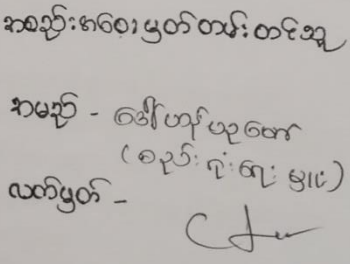 အစည်းအဝေးမှတ်တမ်းတင်သူ
အမည် - ဒေါ်ဟန်ယုတော်
(စည်းရုံးရေးမှူး)
လက်မှတ် -